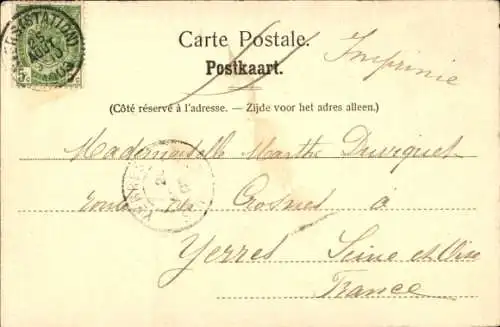 (STATION)
Carte Postale.
Imprimé
Postkaart.
(Côté réservé à l'adresse. – Zijde voor het adres alleen.)
Mademoiselle Marthe Duviquet
des Crosnes à
YERRES
Yerres Seine et Oise
France